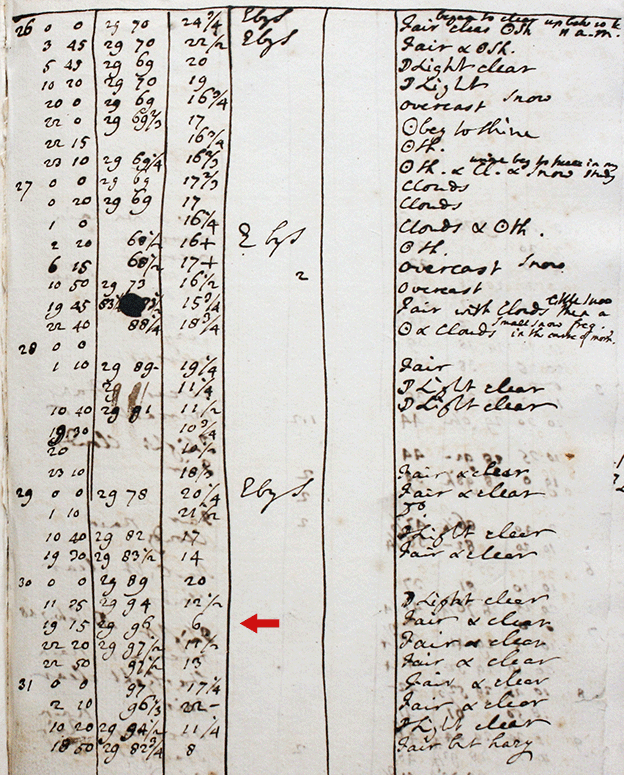 began to clear up before
26 0 0 29 70 24 3/4 E by S Fair clear ⊙sh 11 a.m.
3 45 29 70 22 1/2 E by S Fair & ⊙sh.
5 45 29 69 20 ☽ Light clear
10 20 29 70 19 ☽ Light
20 0 29 69 16 3/4 overcast snow
22 0 29 69 2/3 17 ⊙ beg to shine
22 15 16 3/4 ⊙sh.
23 10 29 69 1/4 16 2/3 ⊙sh. & Cl. & snow beg to in my study
27 0 0 29 69 17 2/3 Clouds
0 20 29 69 17 Clouds
1 0 16 1/4 Clouds & ⊙sh.
2 20 68 1/2 16+ E by S ⊙sh.
6 15 68 1/2 17+ overcast snow
10 50 29 73 16 1/2 2 overcast
19 45 15 3/4 Fair with Clouds then a
22 40 88 1/4 18 3/4 ⊙ & Clouds small snow freq. in the course of morn.
28 0 0
1 10 29 89- 19 1/4 Fair
29 11 1/4 ☽ Light clear
10 40 29 91 11 1/2 ☽ Light clear
19 30 10 3/4
20 10 1/2
23 10 18 1/2 Fair & clear
29 0 0 29 78 20 1/4 E by S Fair & clear
1 10 21 1/2 Do.
10 40 29 82 17 ☽ Light clear
19 30 29 83 1/2 14 Fair & clear
30 0 0 29 89 20
11 25 29 94 12 1/2 ☽ Light clear
19 15 29 96 6 Fair & clear
22 20 29 97 1/2 11 1/2 Fair & clear
22 50 97 1/2 13 Fair & clear
31 0 0 97 17 1/4 Fair & clear
2 10 96 1/3 22- Fair & clear
10 20 29 94 1/2 11 1/4 ☽ Light clear
18 50 29 82 3/4 8 Fair but hazy